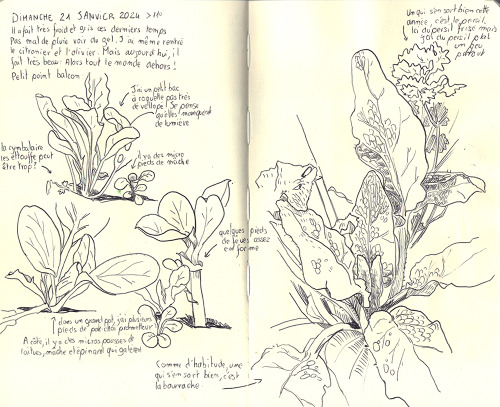 DIMANCHE 21 JANVIER 2024 > 11°
Il a fait très froid et gris ces derniers temps
Pas mal de pluie voir du gel. J'ai même rentré
le citronier et l'olivier. Mais aujourd'hui, il
fait très beau. Alors tout le monde dehors!
Petit point balcon
J'ai un petit bac
à roquette pas très
développé! Je pense
qu'elles manquent
de lumière
la cymbalaire
les étouffe peut
être trop?
il y a des micro
pieds de mâche
quelques pieds
de fèves assez
en forme
↑ dans un grand pot, j'ai plusieurs
pieds de pak-choï prometteur
A côté, il y a des micros pousses de
laitues, mâche et épinard qui galèrent
Comme d'habitude, une
qui s'en sort bien, c'est
la bourrache
Un qui s'en sort bien cette
année, c'est le persil.
là du persil frisé mais
j'ai du persil plat
un peu
partout